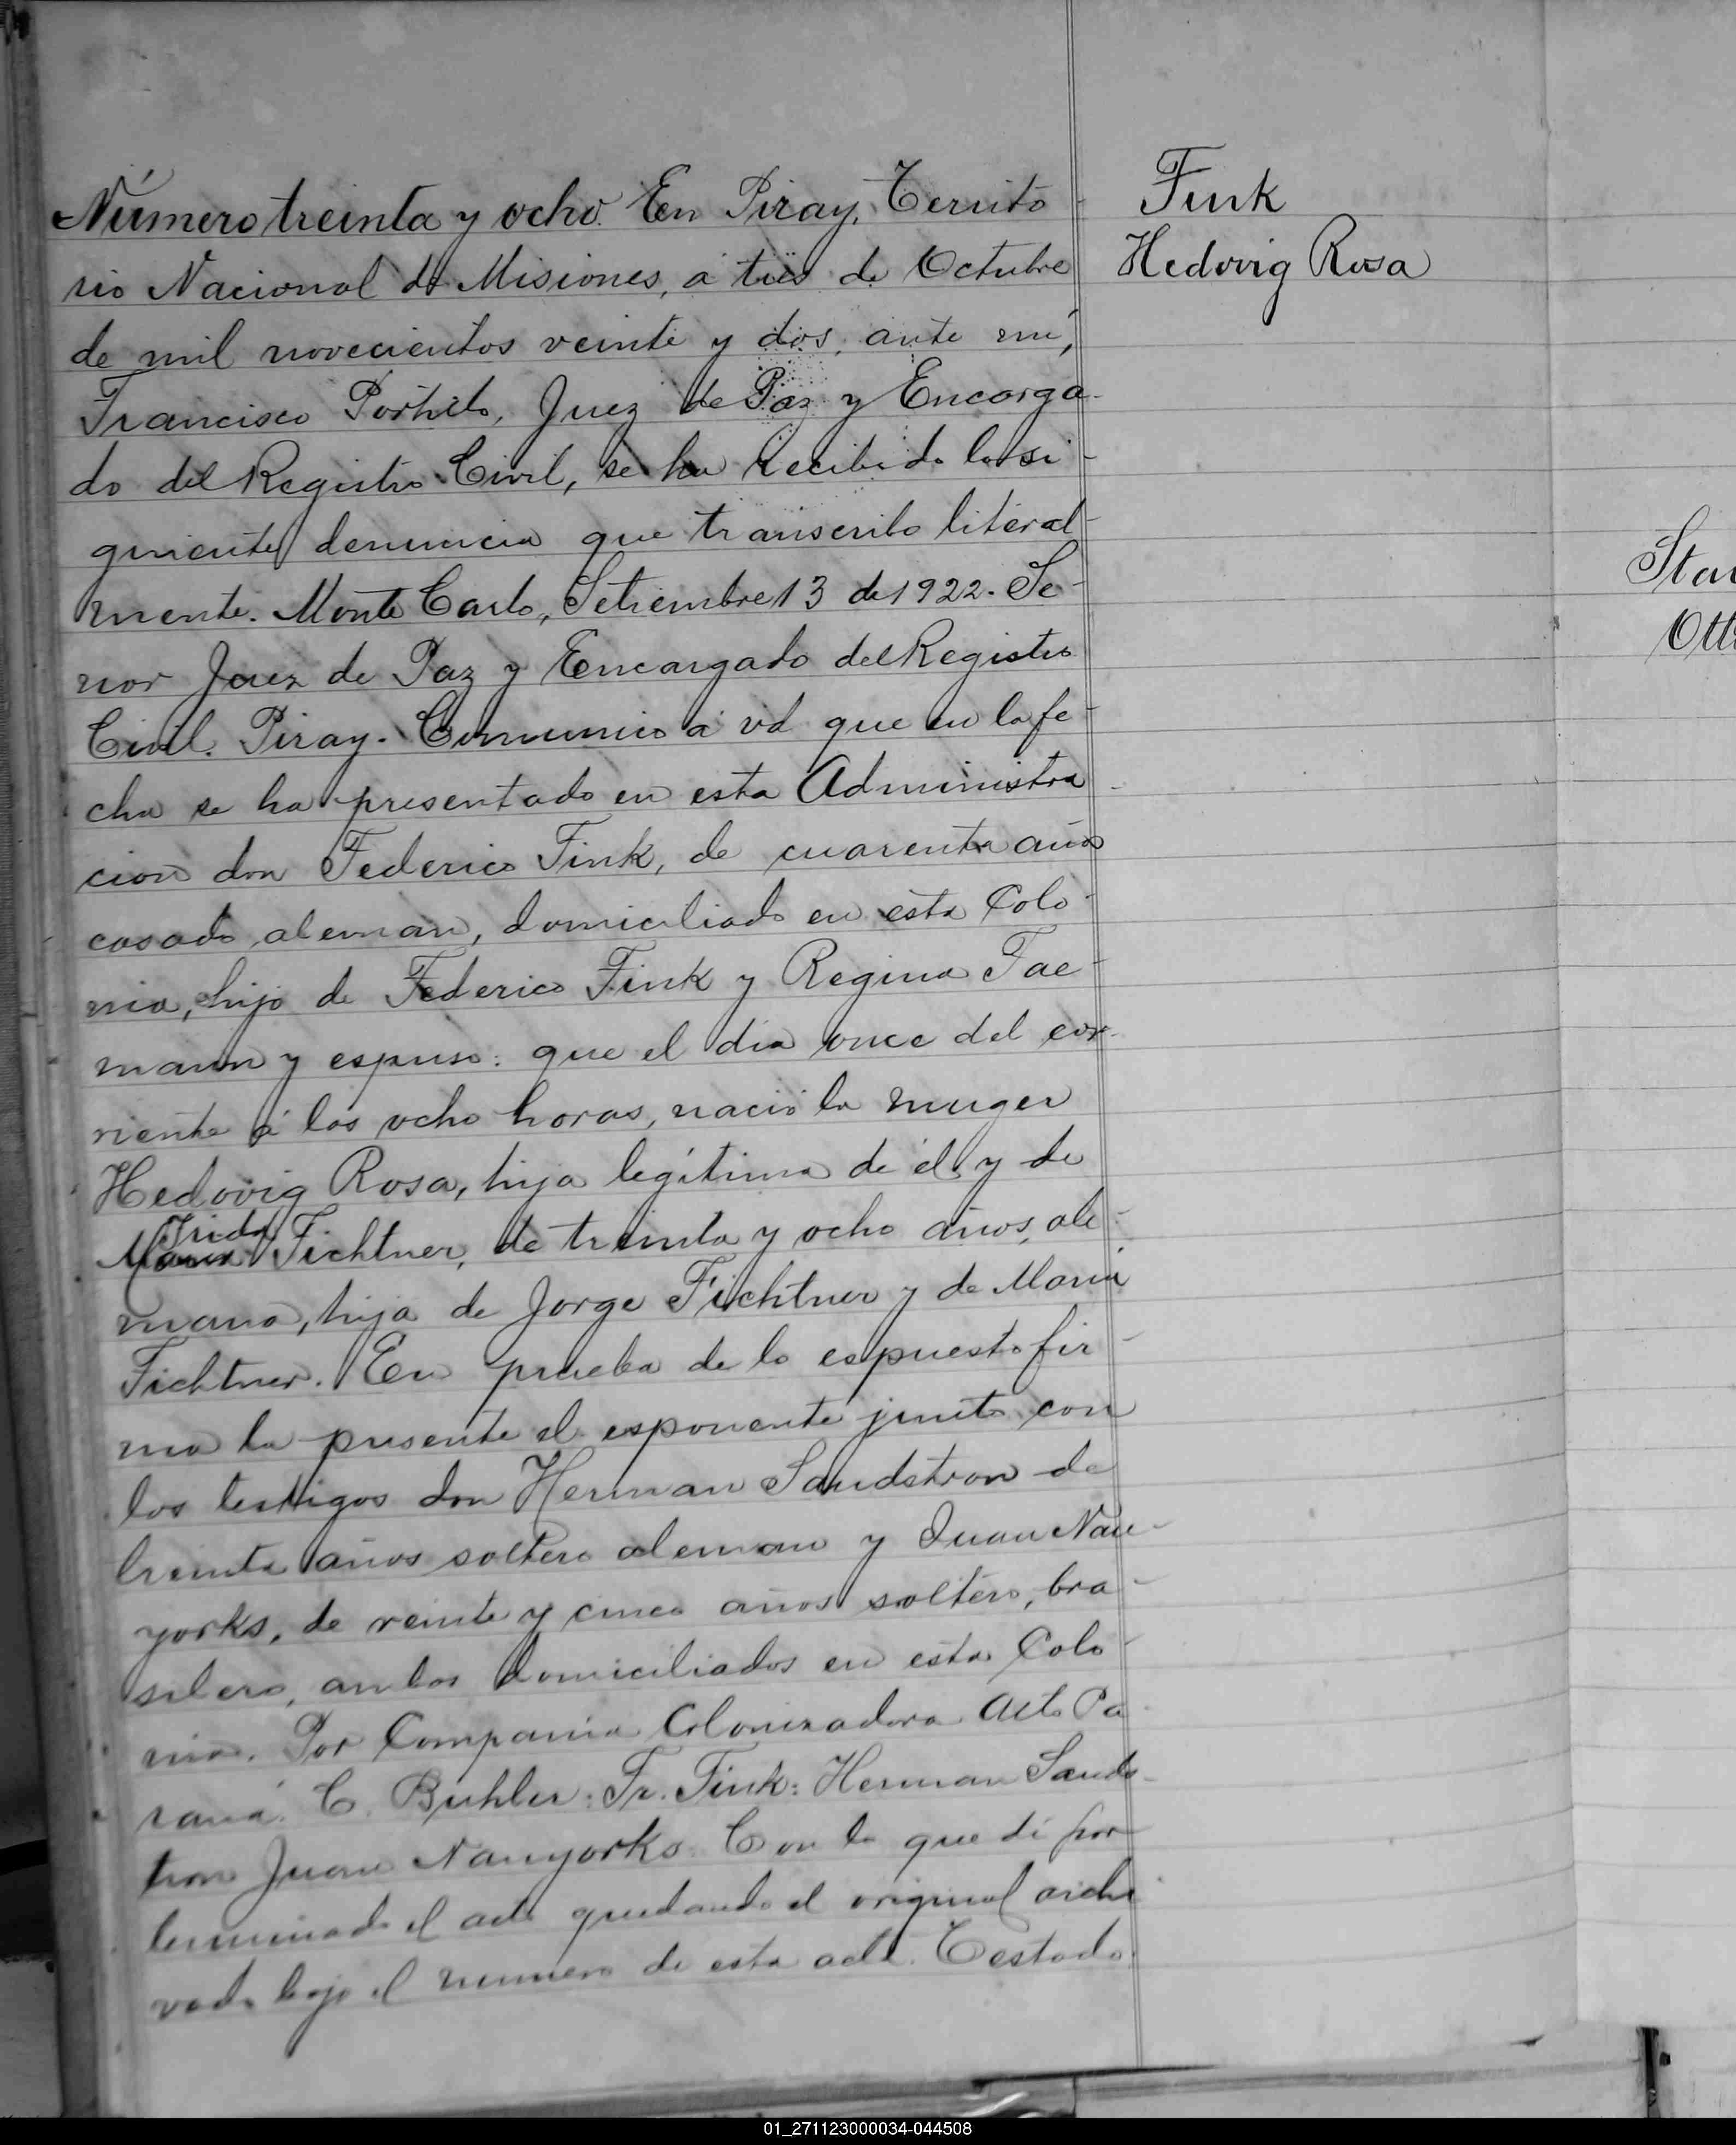 Número treinta y ocho. En Piray, Territo-
rio Nacional de Misiones, á tres de Octubre
de mil novecientos veinte y dos, ante mí,
Francisco Portillo, Juez de Paz y Encarga-
do del Registro Civil, se ha recibido la si-
guiente denuncia que transcribo literal-
mente. Monte Carlo, Setiembre 13 de 1922. Se-
ñor Juez de Paz y Encargado del Registro
Civil. Piray. Comunico á vd que en la fe-
cha se ha presentado en esta Administra-
cion don Federico Fink, de cuarenta años
casado, aleman, domiciliado en esta Colo-
nia, hijo de Federico Fink y Regina Tae-
mann y espuso: que el dia once del cor-
riente á las ocho horas, nació la muger
Hedovig Rosa, hija legítima de él y de
Frida
Maria Fichtner, de treinta y ocho años, ale-
mana, hija de Jorge Fichtner y de Maria
Fichtner. En prueba de lo espuesto fir-
ma la presente el esponente junto con
los testigos don Herman Sandstron de
treinta años soltero aleman y Juan Nau-
yorks, de veinte y cinco años soltero, bra-
silero, ambos domiciliados en esta Colo-
nia. Por Compania Colonizadora Alto Pa-
raná. C. Buhler: Fr. Fink: Herman Sands-
tron Juan Nauyorks. Con lo que dí por
terminado el acto quedando el original archi-
vado bajo el numero de esta acta. Testado
Fink
Hedovig Rosa
Sta
Ott
01_271123000034-044508